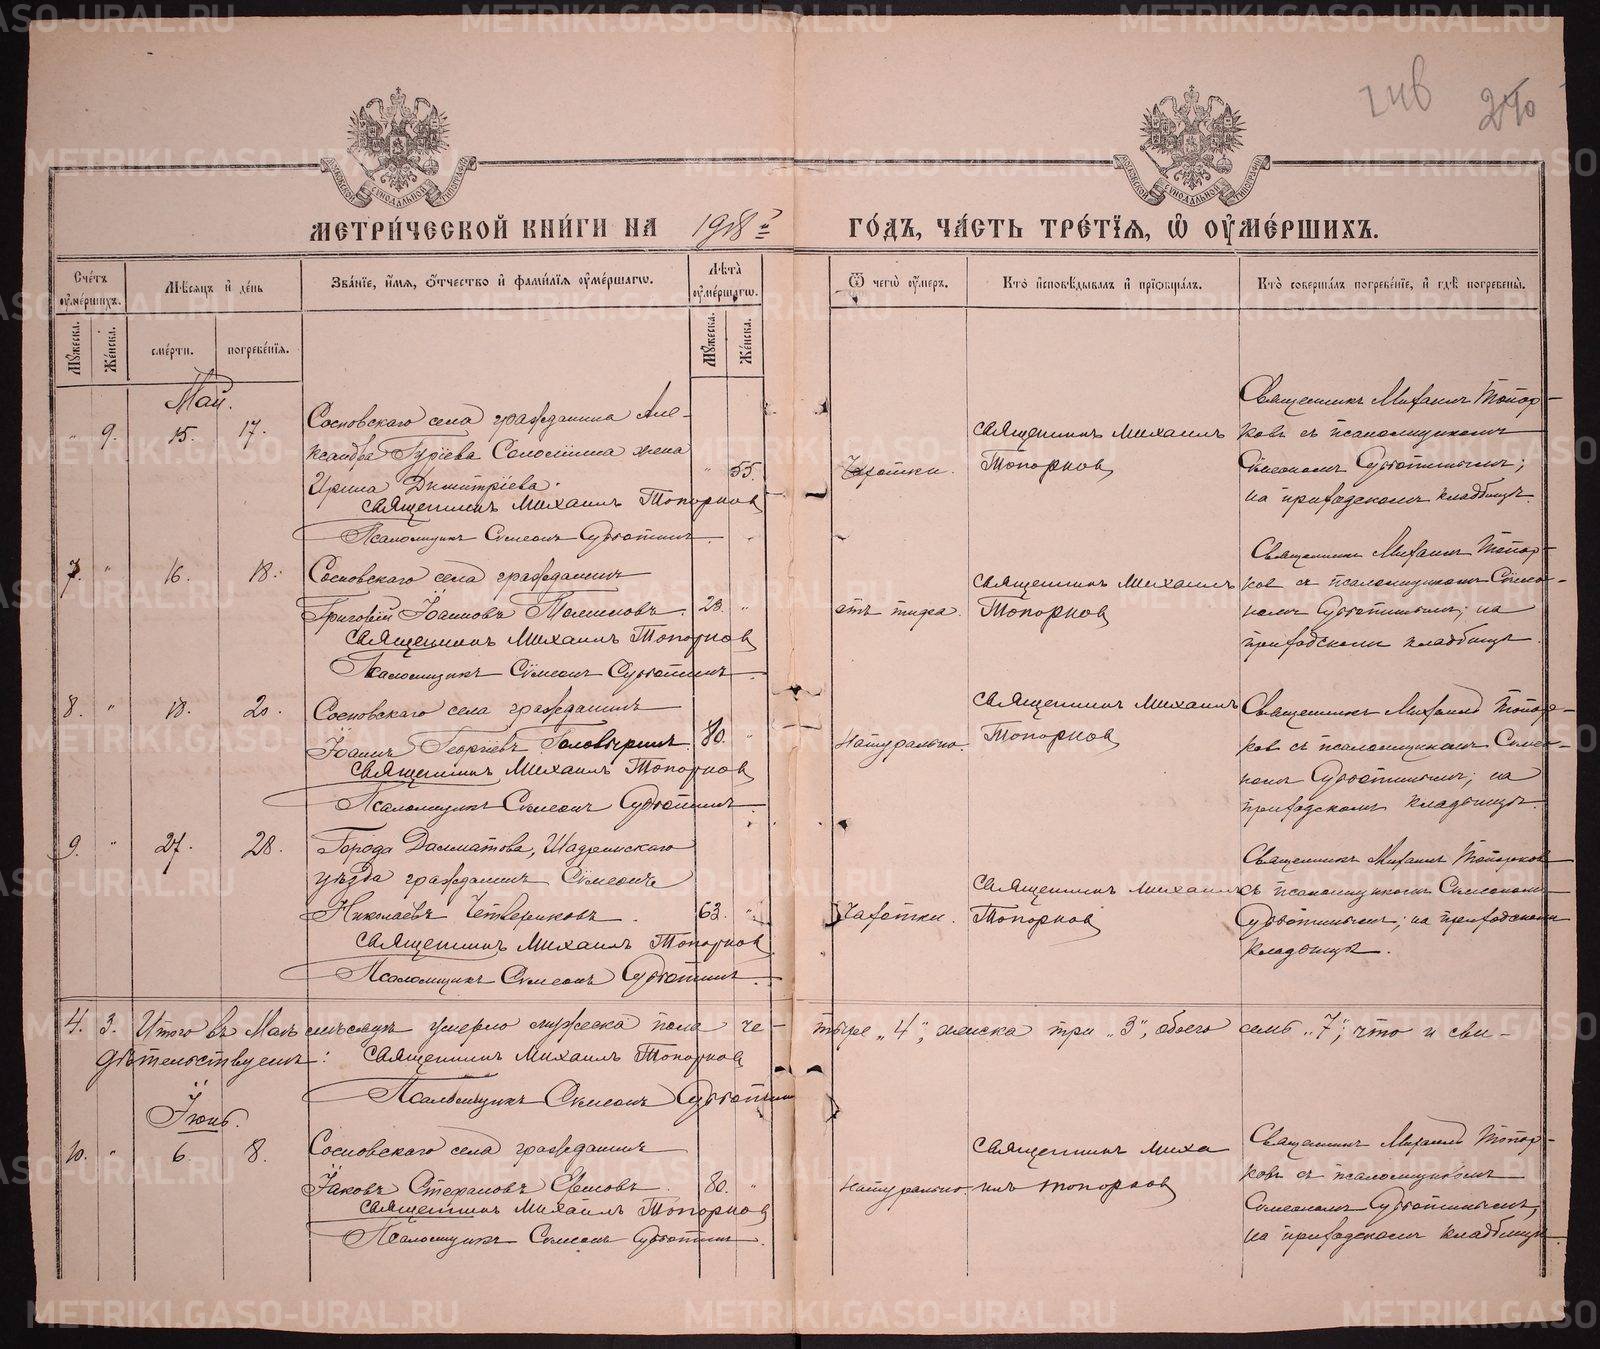 METRIKI.GASO-URAL.RU
246 240
МЕТРИ́ЧЕСКОЙ КНИ́ГИ НА 1918 й ГО́ДЪ, ЧА́СТЬ ТРЕ́ТІѦ, Ѡ ОУ҆МЕ́РШИХЪ.
Сче́тъ оу҆ме́ршихъ.
Мѣсѧцъ и҆ де́нь
Зва́нїе, и҆́мѧ, ѻ҆́тчество и҆ фами́лїѧ оу҆ме́ршагѡ.
Лѣта̀ оу҆ме́ршагѡ.
Ѿ чегѡ̀ оу҆́меръ.
Кто̀ и҆сповѣ́дывалъ и҆ прїѡбща́лъ.
Кто̀ соверша́лъ погребе́нїе, и҆ гдѣ̀ погребе́ны.
Мꙋ́жеска.
Же́нска.
сме́рти.
погребе́нїѧ.
Мꙋ́жеска.
Же́нска.
Май.
" 9. 15. 17.
Сосновскаго села гражданина Але-
ксандра Гурїева Солонина жена
Ирина Димитрїева. " 55.
Священникъ Михаилъ Топорков
Псаломщикъ Сѵмеонъ Субботинъ
Чахотки.
Священникъ Михаилъ
Топорков
Священникъ Михаилъ Топор-
ковъ съ псаломщикомъ
Сѵмеономъ Субботинымъ;
на приходскомъ кладбищѣ.
7. " 16. 18.
Сосновскаго села гражданинъ
Григорїй Іоанновъ 28. "
Священникъ Михаилъ Топорков
Псаломщикъ Сѵмеонъ Субботинъ
отъ тифа.
Священникъ Михаилъ
Топорков
Священникъ Михаилъ Топор-
ков съ псаломщикомъ Сѵмео-
номъ Субботинымъ; на
приходскомъ кладбищѣ.
8. " 18. 20.
Сосновскаго села гражданинъ
Іоаннъ Георгїевъ 80. "
Священникъ Михаилъ Топорков
Псаломщикъ Сѵмеонъ Субботинъ
Натурально.
Священникъ Михаилъ
Топорков
Священникъ Михаилъ Топор-
ков съ псаломщикомъ Сѵмео-
номъ Субботинымъ; на
приходскомъ кладбищѣ.
9. " 27. 28.
Города Далматова, Шадринскаго
уѣзда гражданинъ Сѵмеонъ
Николаевъ Четвериковъ. 63. "
Священникъ Михаилъ Топорков
Псаломщикъ Сѵмеонъ Субботинъ
Чахотки.
Священникъ Михаилъ
Топорков
Священникъ Михаилъ Топорков
съ псаломщикомъ Сѵмеономъ
Субботинымъ; на приходскомъ
кладбищѣ.
4. 3. Итого въ Маѣ мѣсяцѣ умерло мужеска пола че-тыре „4", женска три „3", обоего семь „7"; что и сви-
дѣтельствуемъ: Священникъ Михаилъ Топорков
Псаломщикъ Сѵмеонъ Субботинъ
Іюнь.
10. " 6. 8.
Сосновскаго села гражданинъ
Іаковъ Стефановъ 80. "
Священникъ Михаилъ Топорков
Псаломщикъ Сѵмеонъ Субботинъ.
Натурально.
Священникъ Миха
илъ Топорков
Священникъ Михаилъ Топор-
ковъ съ псаломщикомъ
Сѵмеономъ Субботинымъ,
на приходскомъ кладбищѣ.